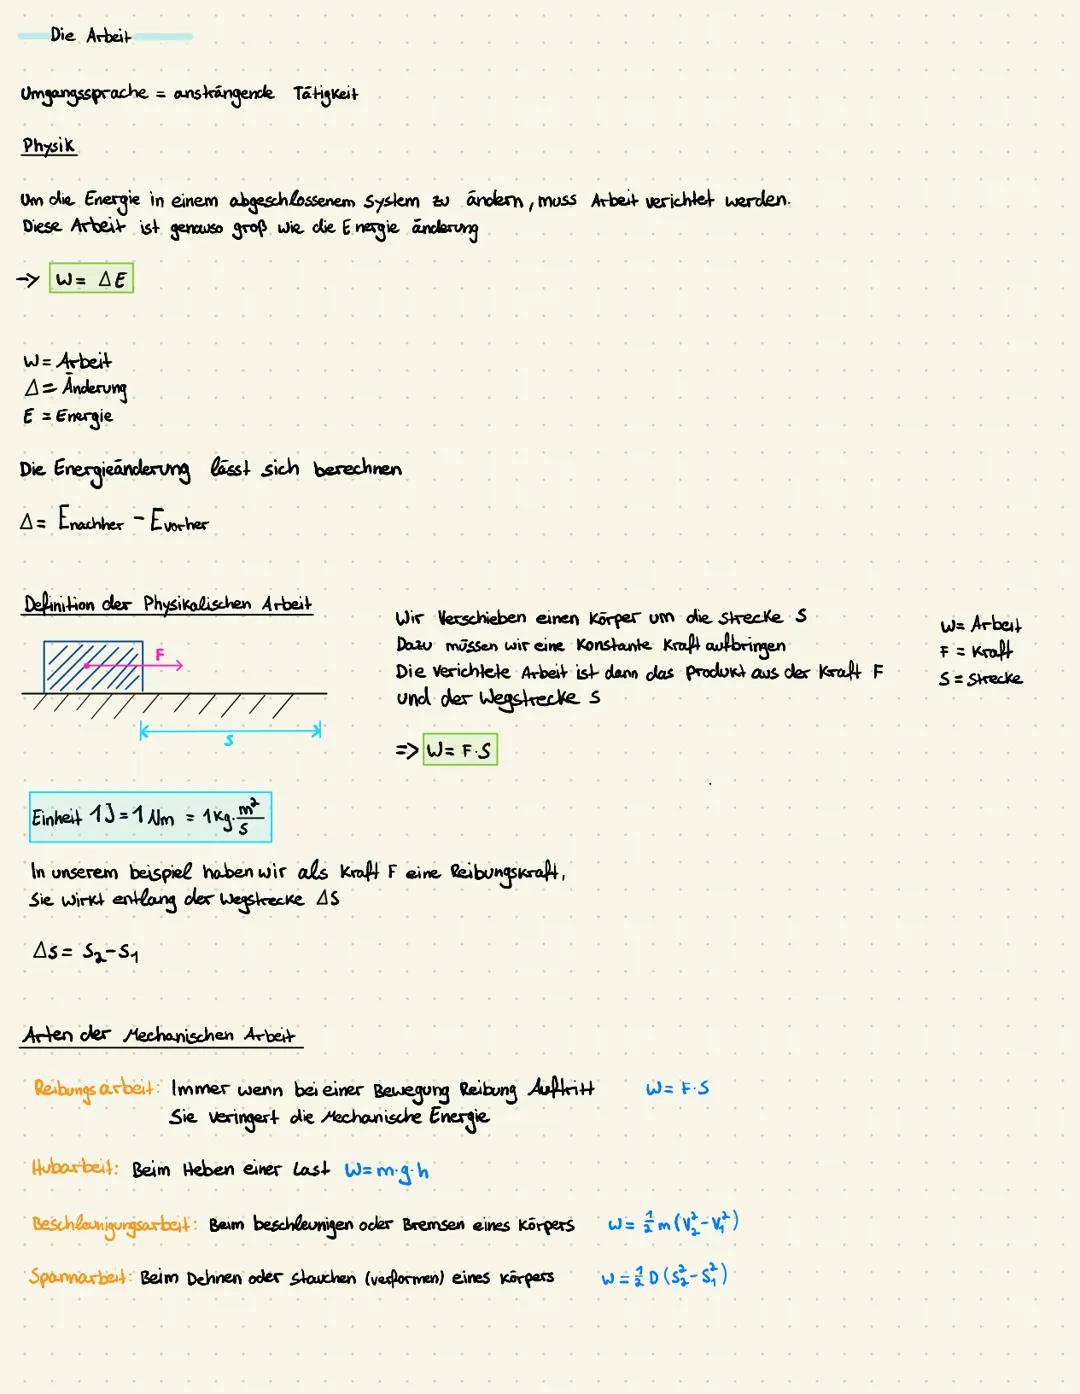 Die Arbeit
Umgangssprache = ansträngende Tätigkeit
Physik
Um die Energie in einem abgeschlossenem System zu ändern, muss Arbeit verichtet werden.
Diese Arbeit ist genauso groß wie die Energie änderung
-> W = ΔE
W = Arbeit
Δ = Änderung
E = Energie
Die Energieänderung lässt sich berechnen
Δ = Enachher - Evorher
Definition der Physikalischen Arbeit
F
s
Wir Verschieben einen Körper um die Strecke S
Dazu müssen wir eine Konstante Kraft aufbringen
Die Verichtete Arbeit ist dann das Produkt aus der Kraft F
und der Wegstrecke S
=> W = F·S
W = Arbeit
F = Kraft
S = Strecke
Einheit 1J = 1 Nm = 1Kg·m²/s
In unserem beispiel haben wir als Kraft F eine Reibungskraft,
Sie wirkt entlang der Wegstrecke ΔS
ΔS = S₂-S₁
Arten der Mechanischen Arbeit
Reibungsarbeit: Immer wenn bei einer Bewegung Reibung Auftritt W = F·S
Sie veringert die Mechanische Energie
Hubarbeit: Beim Heben einer Last W = m·g·h
Beschleunigungsarbeit: Beim beschleunigen oder Bremsen eines Körpers W = 1/2 m (V₂²-V₁²)
Spannarbeit: Beim Dehnen oder Stauchen (verformen) eines Körpers W = 1/2 D (S₂²-S₁²)